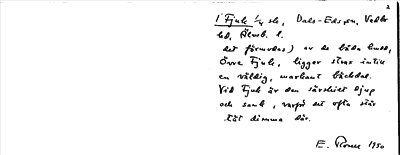 2
1 Fjuk 1/4 sk, Dals-Eds sn, Vedbo
hd, Älvsb. l.
det förmodas) av de båda
Övre Fjuk, ligger strax intill
en väldig, markant bäckdal.
Vid Fjuk är den särskilt djup
och sank, varför det ofta står
tät dimma där.
E. 1950